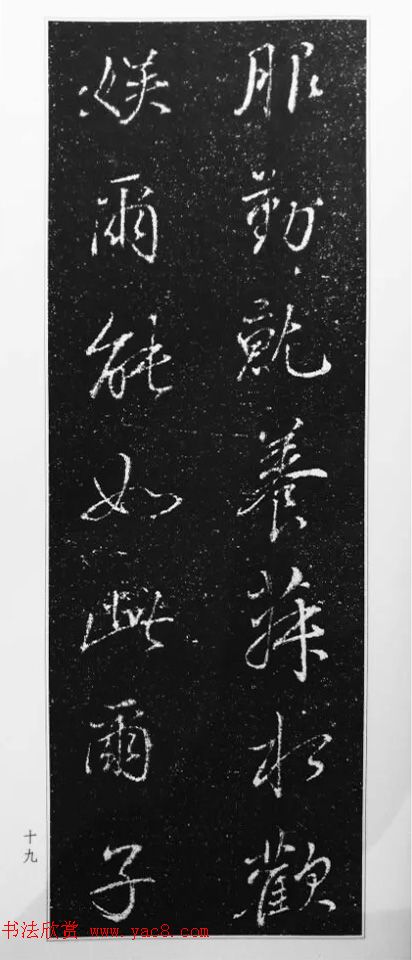 服勤就養蔬水歡
娱爾能如此爾子
十九
书法欣赏 www.yac8.com